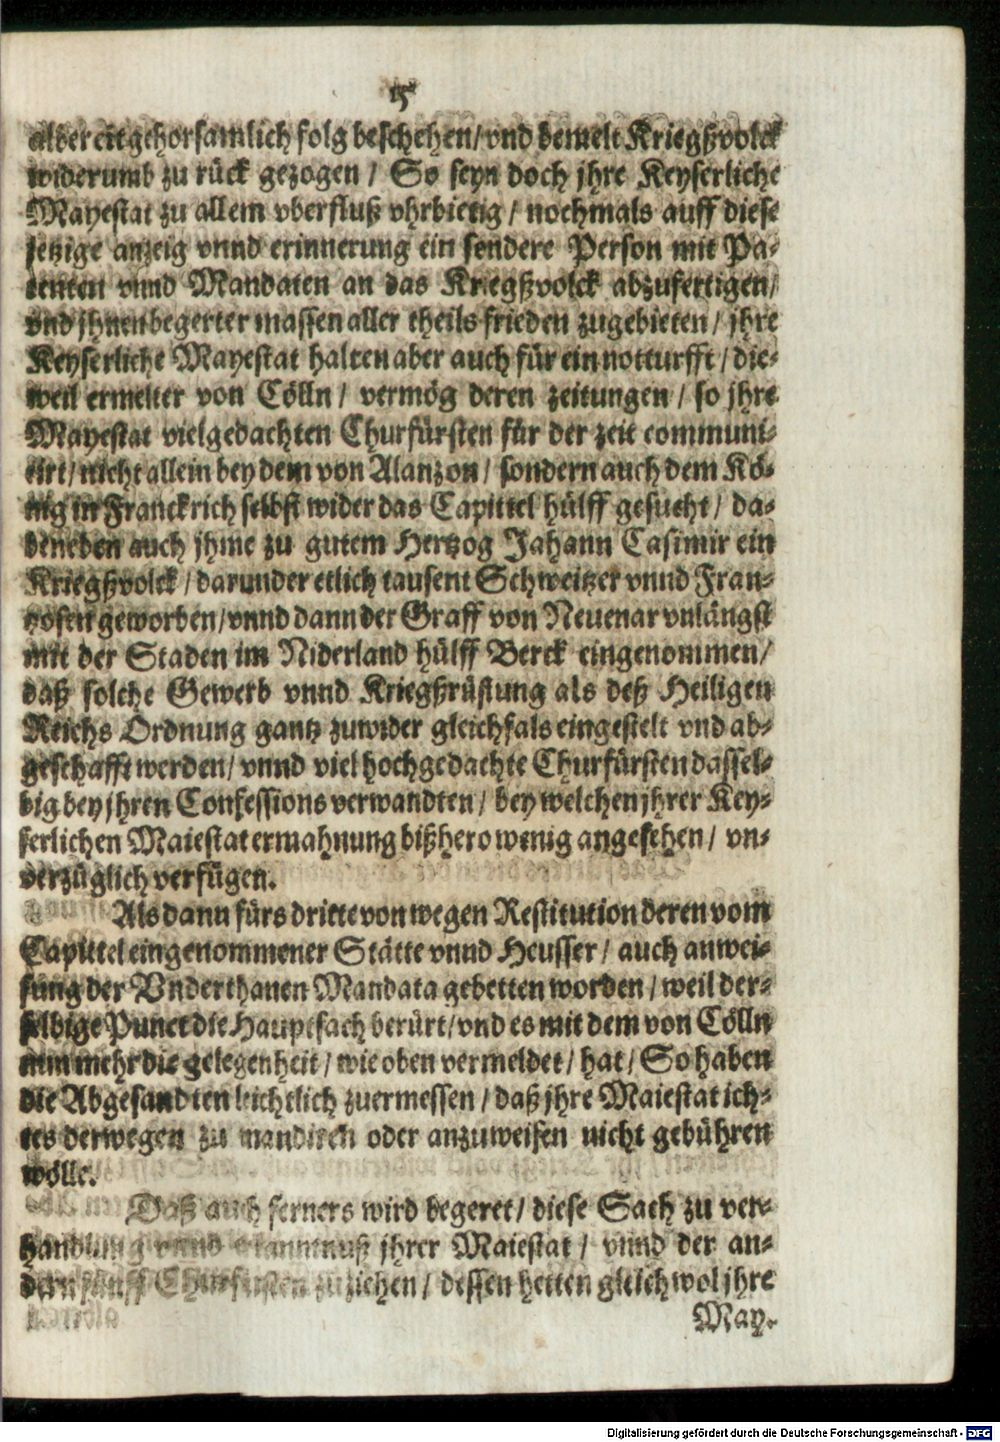 15
albereit gehorsamlich folg beschehen / vnd bemelt Kriegßvolck
widerumb zu rück gezogen / So seyn doch jhre Keyserliche
Mayestat zu allem vberfluß vhrbietig / nochmals auff diese
jetzige anzeig vnnd erinnerung ein sondere Person mit Pa-
tenten vnnd Mandaten an das Kriegßvolck abzufertigen /
vnd jhnen begerter massen aller theils frieden zugebieten / jhre
Keyserliche Mayestat halten aber auch für ein notturfft / die-
weil ermelter von Cölln / vermög deren zeitungen / so jhre
Mayestat vielgedachten Churfürsten für der zeit communi-
cirt / nicht allein bey dem von Alanzon / sondern auch dem Kö-
nig in Franckrich selbst wider das Capittel hülff gesucht / da-
beneben auch jhme zu gutem Hertzog Jahann Casimir ein
Kriegßvolck / darunder etlich tausent Schweitzer vnnd Fran-
tzosen geworben / vnnd dann der Graff von Neuenar vnlängst
mit der Staden im Niderland hülff Berck eingenommen /
daß solche Gewerb vnnd Kriegßrüstung als deß Heiligen
Reichs Ordnung gantz zuwider gleichfals eingestelt vnd ab-
geschafft werden / vnnd viel hochgedachte Churfürsten dassel-
big bey jhren Confessions verwandten / bey welchen jhrer Key-
serlichen Maiestat ermahnung bißhero wenig angesehen / vn-
verzüglich verfügen.
Als dann fürs dritte von wegen Restitution deren vom
Capittel eingenommener Stätte vnnd Heusser / auch anwei-
sung der Vnderthanen Mandata gebetten worden / weil der-
selbige Punct die Hauptsach berürt / vnd es mit dem von Cölln
nun mehr die gelegenheit / wie oben vermeldet / hat / So haben
die Abgesandten leichtlich zuermessen / daß jhre Maiestat ich-
tes derwegen zu mandiren oder anzuweisen nicht gebühren
wölle.
Daß auch ferners wird begeret / diese Sach zu ver-
handlung vnnd erkanntnuß jhrer Maiestat / vnnd der an-
dern fünff Churfürsten zuziehen / dessen hetten gleichwol jhre
May-
Digitalisierung gefördert durch die Deutsche Forschungsgemeinschaft - DFG